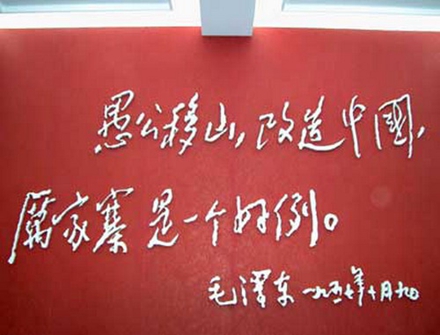 愚公移山，改造中國，
厲家寨是一个好例。
毛澤东 一九五七年十月九日